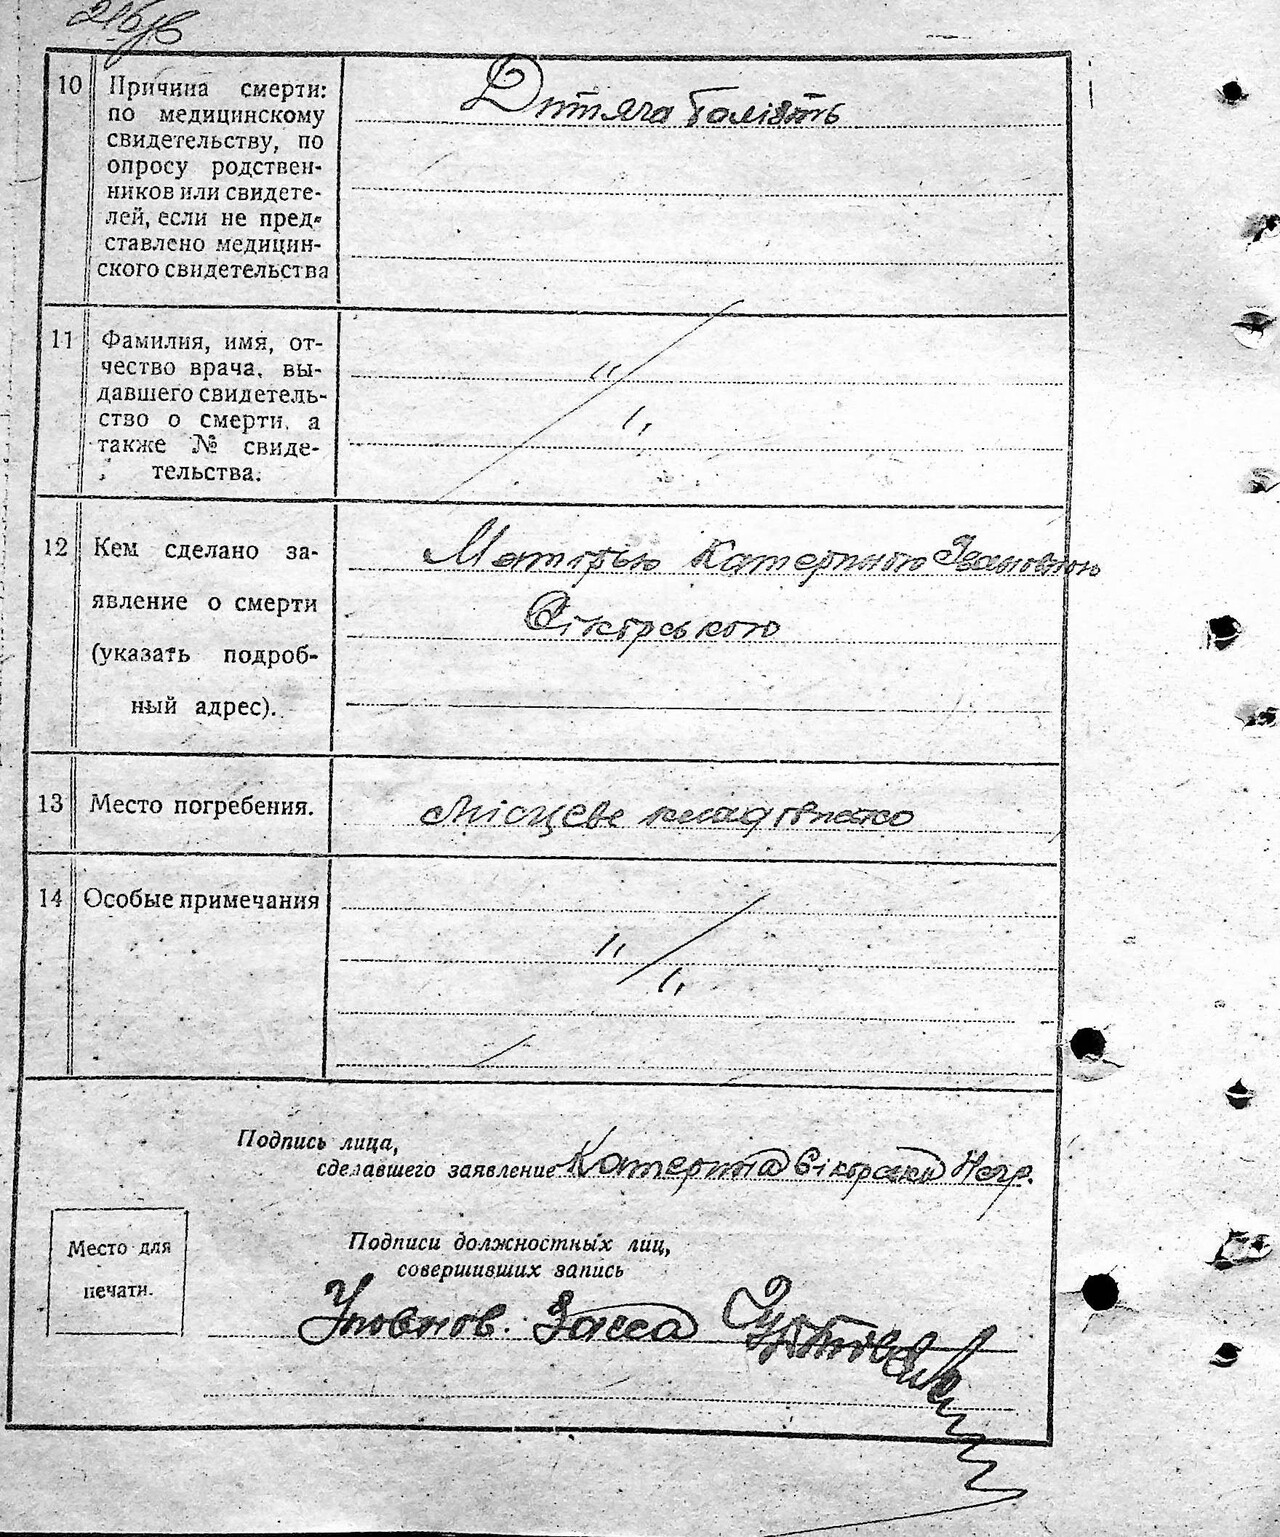 10 Причина смерти:
по медицинскому
свидетельству, по
опросу родствен-
ников или свидете-
лей, если не пред-
ставлено медицин-
ского свидетельства
Дитяча болізть
11 Фамилия, имя, от-
чество врача, вы-
давшего свидетель-
ство о смерти, а
также № свиде-
тельства.
12 Кем сделано за-
явление о смерти
(указать подроб-
ный адрес).
Матірью Катериною Івановною
Сікорською
13 Место погребения.
Місцеве кладовище
14 Особые примечания
Подпись лица,
сделавшего заявление Катерина Сікорська Негр.
Место для
печати.
Подписи должностных лиц,
совершивших запись
Уповнов. Загса